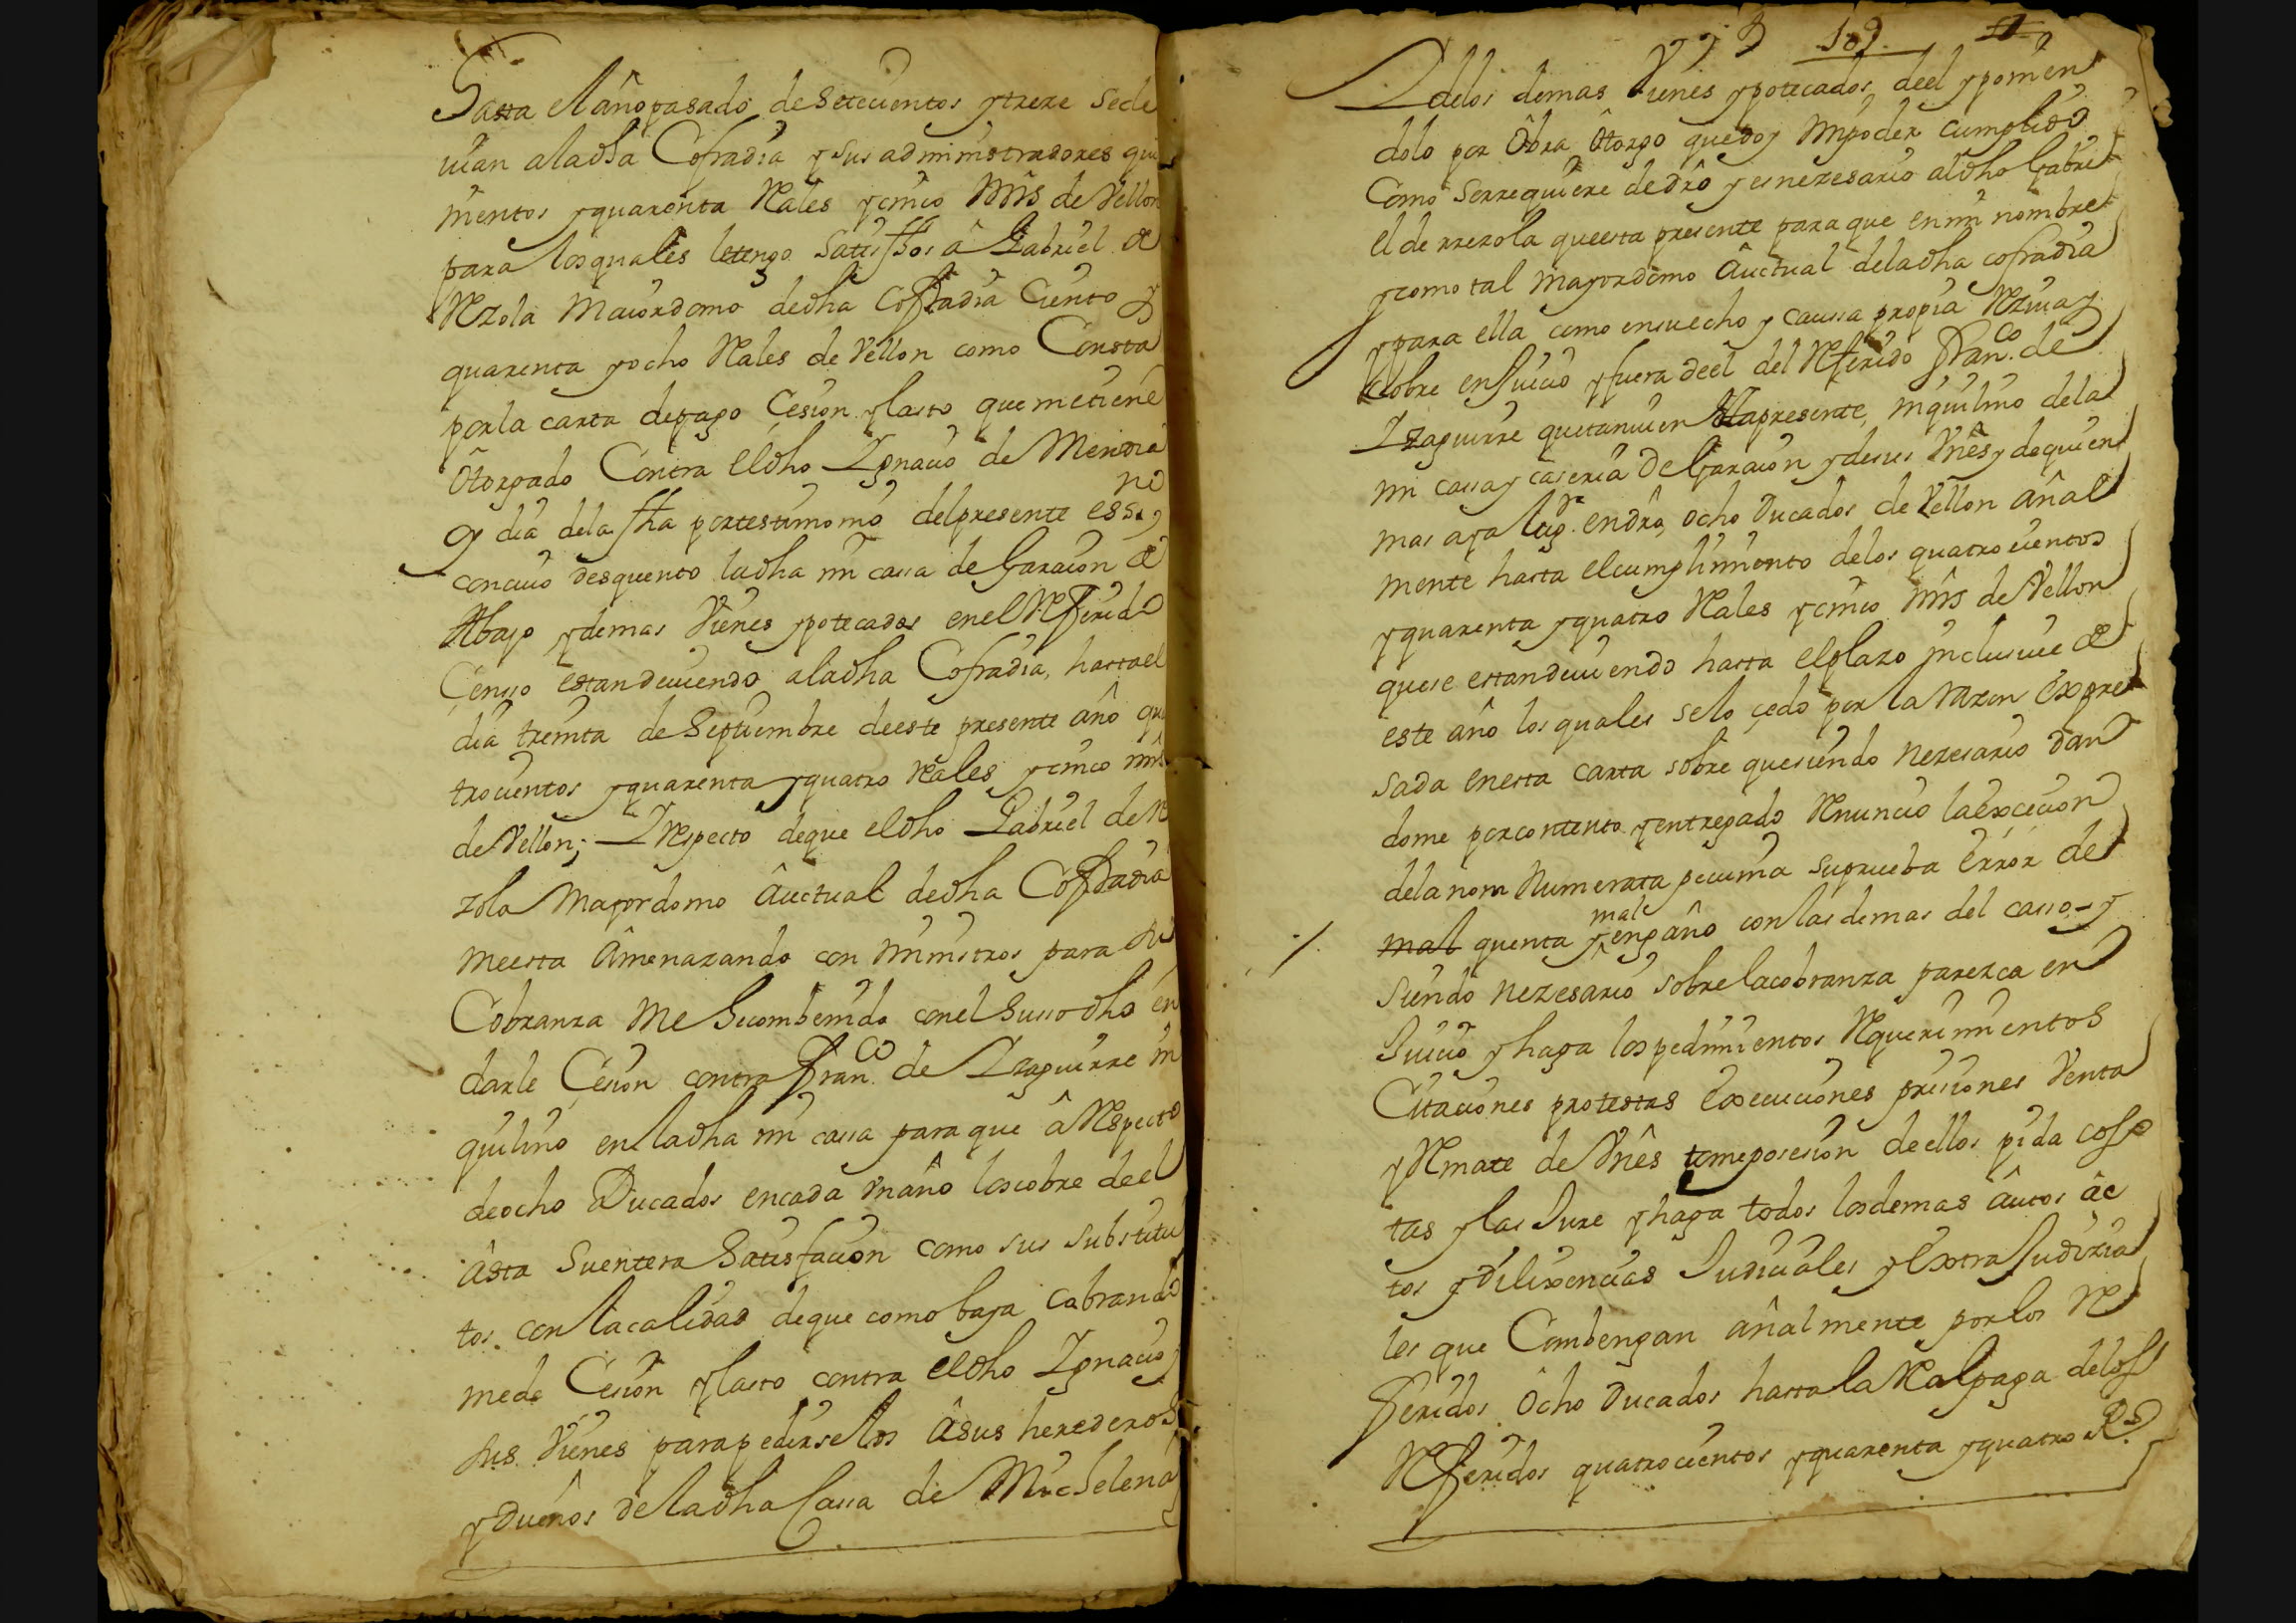 Hasta el año pasado de Setecientos y treze se de
uian a la dha Cofradia y sus administradores qui
nientos y quarenta Reales y cinco mrs de Vellon
para los quales le tengo Satisfhos â Gabriel de
Rezola Maiordomo de dha Cofradia Ciento y
quarenta y ocho Reales de Vellon como Consta
por la carta de pago Çesion y lasto que me tiene
Ôtorgado Contra el dho Ygnacio de Mendia
oy dia de la fha por testimonio del presente essno,
con cuio desquento la dha mi cassa de Garacion de
Abajo y demas Vienes ypotecados en el Referido
Çensso estan deuiendo a la dha Cofradia, hasta el
dia treinta de Septiembre de este presente año qua
trocientos y quarenta y quatro Reales y cinco mrs
de Vellon; Y Respecto de que el dho Gabriel de Re
zola Mayordomo Âuctual de dha Cofradia
me esta Âmenazando con ministros para su
Cobranza me he combenido con el Susso dho en
darle Çesion contra Franco de Yzaguirre in
quilino en la dha mi cassa para que â Respecto
de ocho Ducados en cada vn año los cobre de el
Âsta Su entera Satisfacion como sus substitu
tos. con la calidad de que como baya Cobrando
me de Cesion y lasto contra el dho Ygnacio y
sus Vienes para pedirselos Âsus herederos
y Dueños de la dha Cassa de Michelena
109
Y de los demas Vienes ypotecados de el y ponien
dolo por Ôbra Ôtorgo que doy mi poder cumplido
Como se rrequiere de dro y es nezesario al dho Gabri
el de rrezola que esta presente para que en mi nombre
y como tal mayordomo Âuctual de la dha cofradia
y para ella como en su echo y caussa propia Reziua y
Cobre en Juicio y fuera de el del Referido Franco de
Yzaguirre que tanuien esta presente, inquilino de la
mi cassa y caseria de Garacion y de sus Vnês y de quien
mas aya lugr en dro, ocho Ducados de Vellon añal
mente hasta el cumplimiento de los quatrocientos
y quarenta y quatro Reales y cinco mrs de Vellon
que se estan deuiendo hasta el plazo inclusiue de
este año los quales se lo çedo por la razon expre
sada en esta carta sobre que siendo nezesario dan
dome por contento y entregado Renuncio la excecion
de la nom Numerata pecunia su prueba Error de
mal quenta y mal engaño con las demas del casso - y
Siendo nezesario sobre la cobranza parezca en
Juicio y haga los pedimientos Requerimientos
Citaciones protestas Execuciones prisiones Venta
y Remate de Vnês tome posesion de ellos pida cos
tas y las Jure y haga todos los demas âutos âc
tos y dilixencias Judiciales y Extra Judizia
les que Combengan añalmente por los Re
feridos Ôcho Ducados hasta la Real paga de los
Referidos quatrocientos y quarenta y quatro Rs